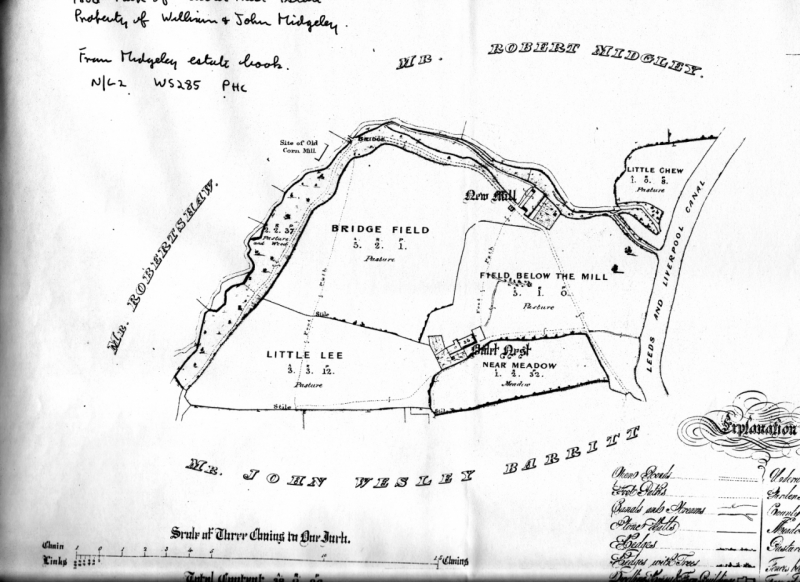 Property of William & John Midgeley.
From Midgeley estate book.
N/L2 WS285 PHC
MR. ROBERT MIDGLEY.
MR. ROBERTSHAW.
Site of Old
Corn Mill.
BRIDGE
LITTLE CHEW
Pasture
New Mill
2. 2. 37
Pasture
and Wood
BRIDGE FIELD
A R P
5. 2. 1.
Pasture
Foot Path
Foot Path
FIELD BELOW THE MILL
5. 1. 0.
Pasture
LEEDS AND LIVERPOOL CANAL
Stile
LITTLE LEE
3. 3. 12.
Pasture
Nest
NEAR MEADOW
Meadow
Stile
Stile
MR. JOHN WESLEY BARRITT
Explanation
Open Roads
Foot Paths
Canals and Streams
Stone Walls
Hedges
Hedges with Trees
Scale of Three Chains to One Inch.
Chain 1 0 1 2 3 4 5 10 15 Chains
Links
Total Content